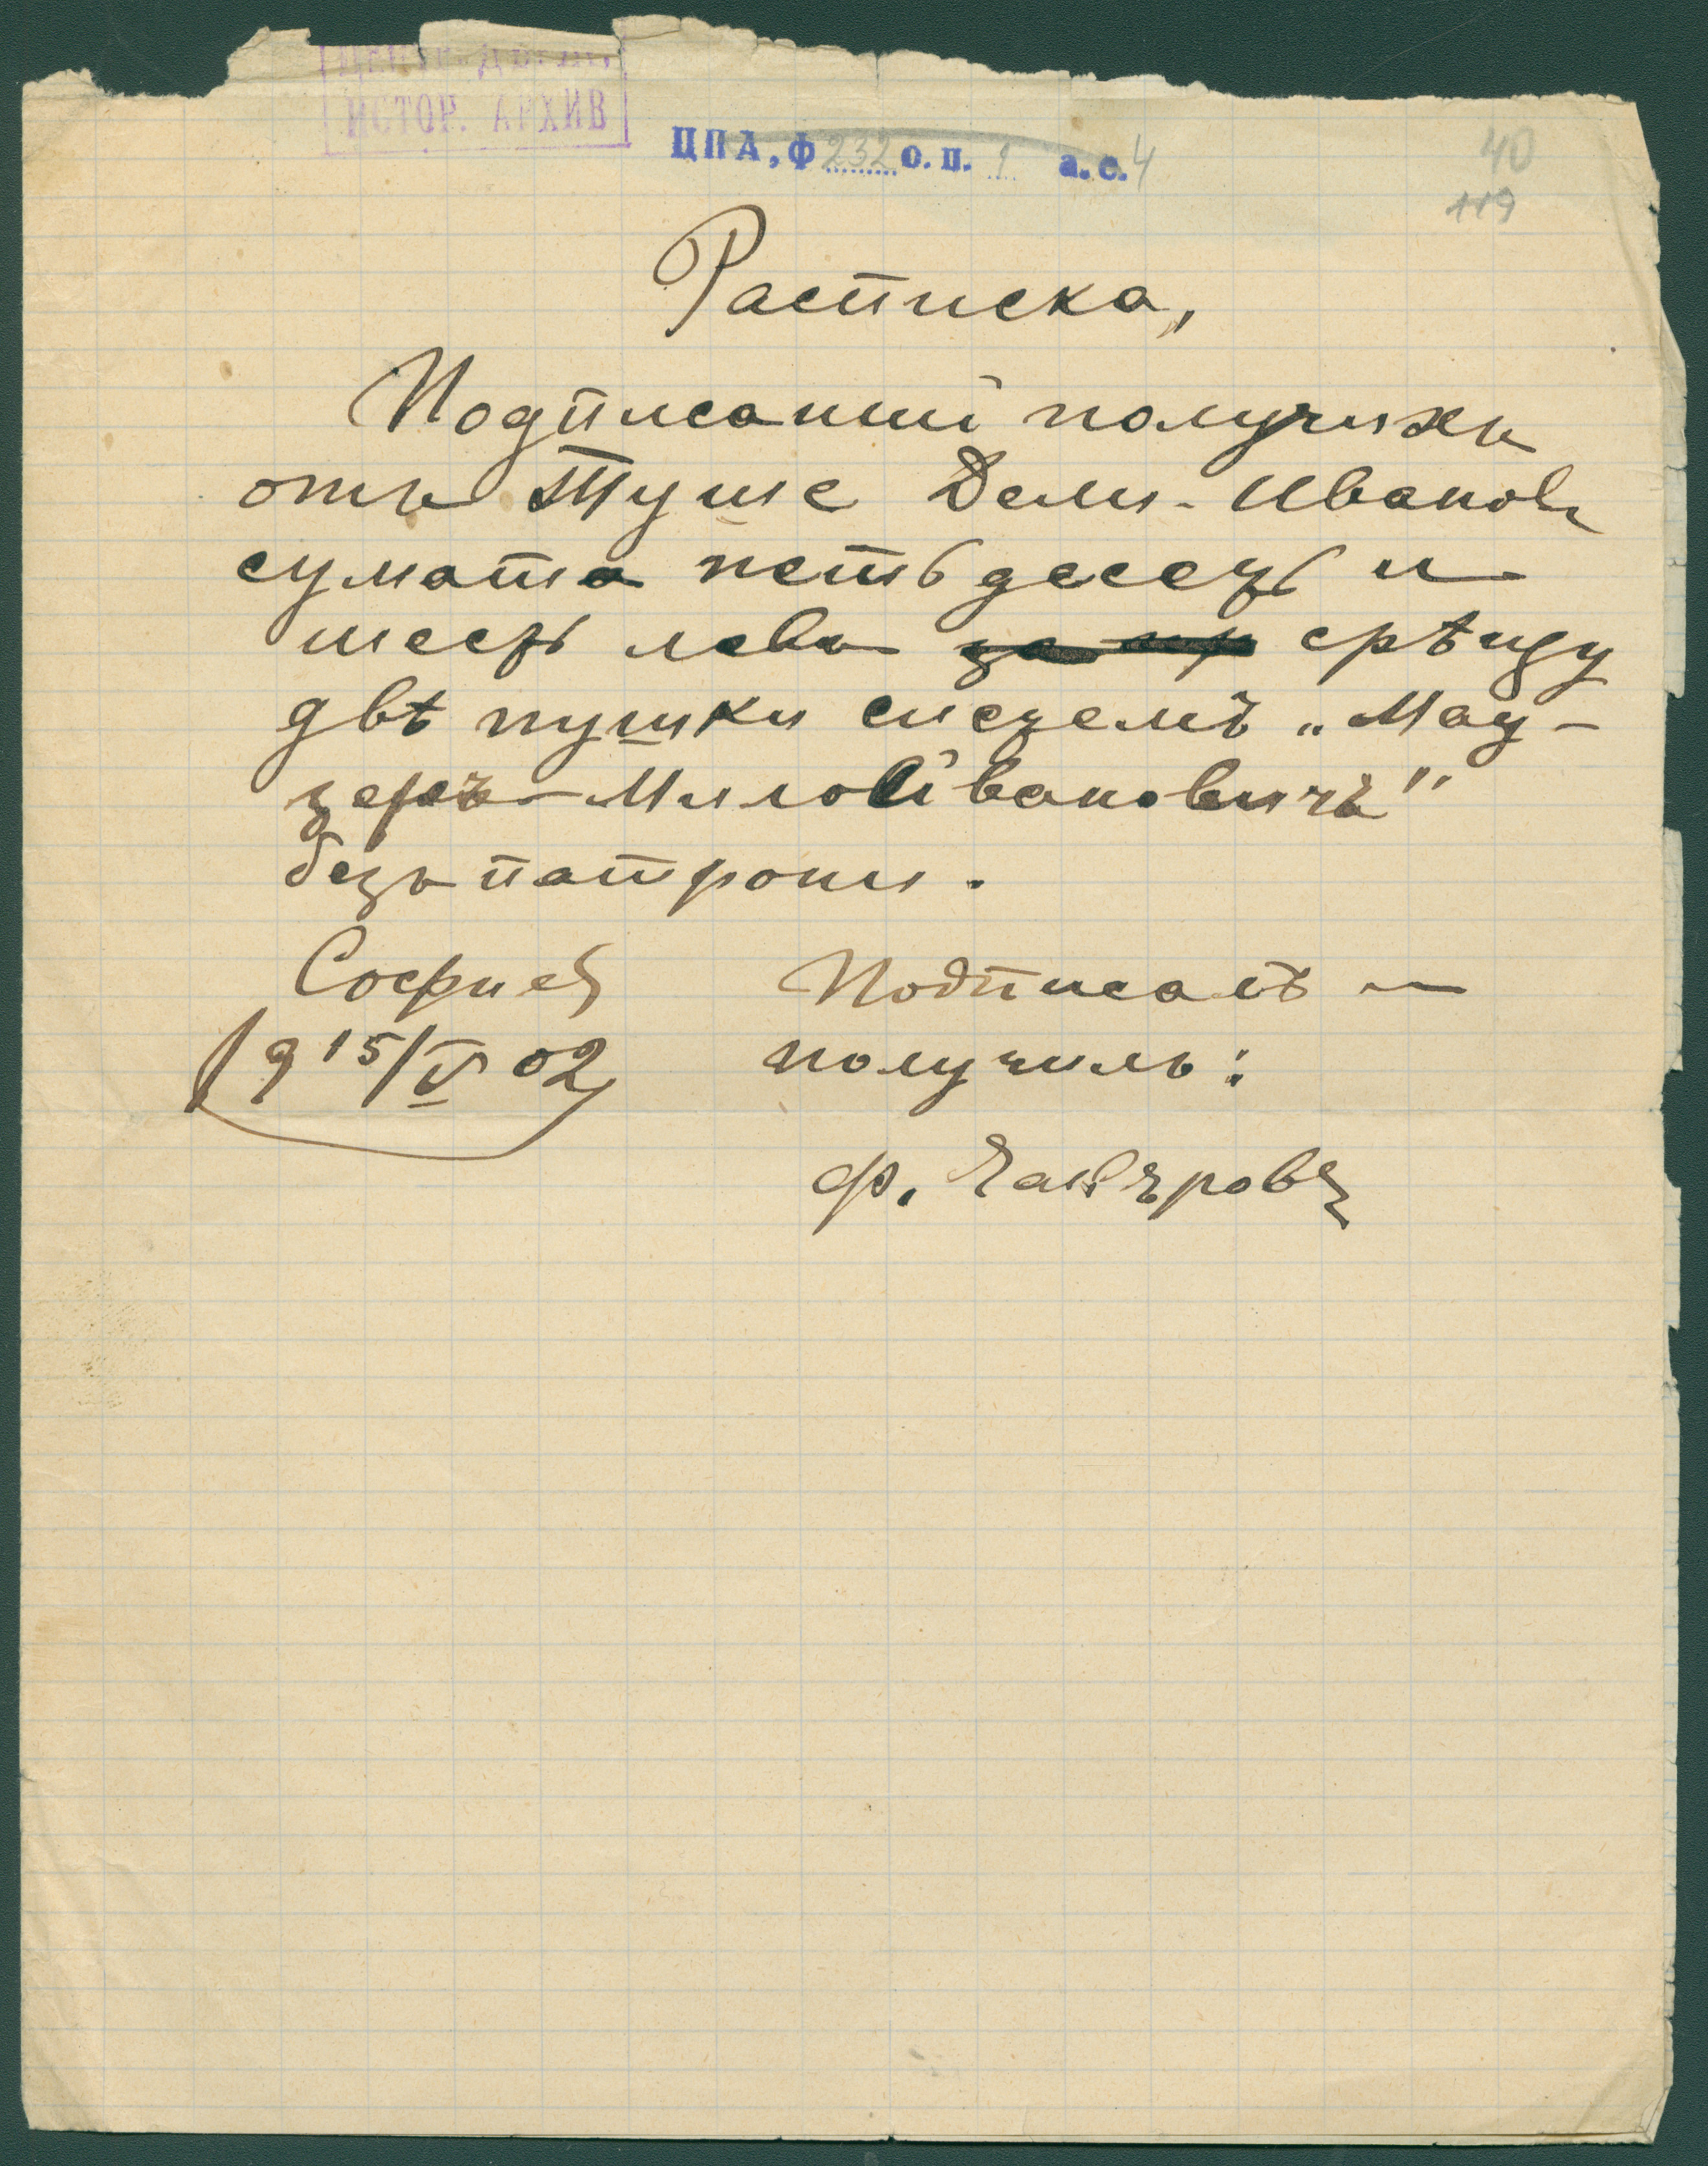 ИСТОР. АРХИВ
ЦПА, Ф 232 о. п. 1 а. е. 4
40
119
Расписка,
Подписаний получихъ
отъ Туше Дели-Ивановъ
сумата петь десеть и
шесть лева срѣщу
двѣ пушки системъ „Мау-
зеръ-Миловановичъ"
безъ патрони.
София Подписалъ —
19 15/V 02 получилъ:
Ф.